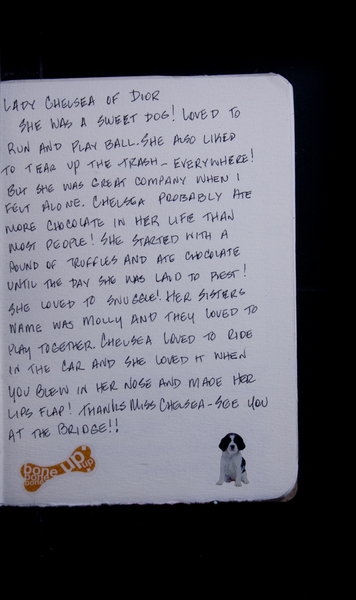 LADY CHELSEA OF DIOR
SHE WAS A SWEET DOG! LOVED TO
RUN AND PLAY BALL. SHE ALSO LIKED
TO TEAR UP THE TRASH - EVERYWHERE!
BUT SHE WAS GREAT COMPANY WHEN I
FELT ALONE. CHELSEA PROBABLY ATE
MORE CHOCOLATE IN HER LIFE THAN
MOST PEOPLE! SHE STARTED WITH A
POUND OF TRUFFLES AND ATE CHOCOLATE
UNTIL THE DAY SHE WAS LAID TO REST!
SHE LOVED TO SNUGGLE! HER SISTERS
NAME WAS MOLLY AND THEY LOVED TO
PLAY TOGETHER. CHELSEA LOVED TO RIDE
IN THE CAR AND SHE LOVED IT WHEN
YOU BLEW IN HER NOSE AND MADE HER
LIPS FLAP! THANKS MISS CHELSEA - SEE YOU
AT THE BRIDGE!!
bone up up
bone
bone